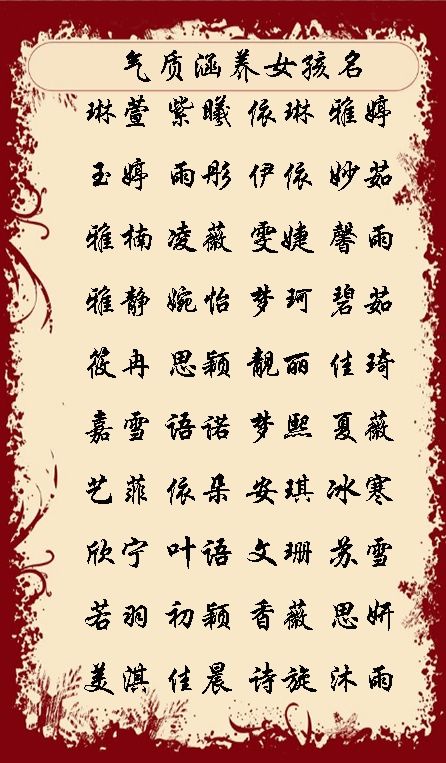 气质涵养女孩名
琳萱 紫曦 依琳 雅婷
玉婷 雨彤 伊依 妙茹
雅楠 凌薇 雯婕 馨雨
雅静 婉怡 梦珂 碧茹
筱冉 思颖 靓丽 佳琦
嘉雪 语诺 梦熙 夏薇
艺菲 依朵 安琪 冰寒
欣宁 叶语 文珊 苏雪
若羽 初颖 香薇 思妍
美淇 佳晨 诗旋 沐雨